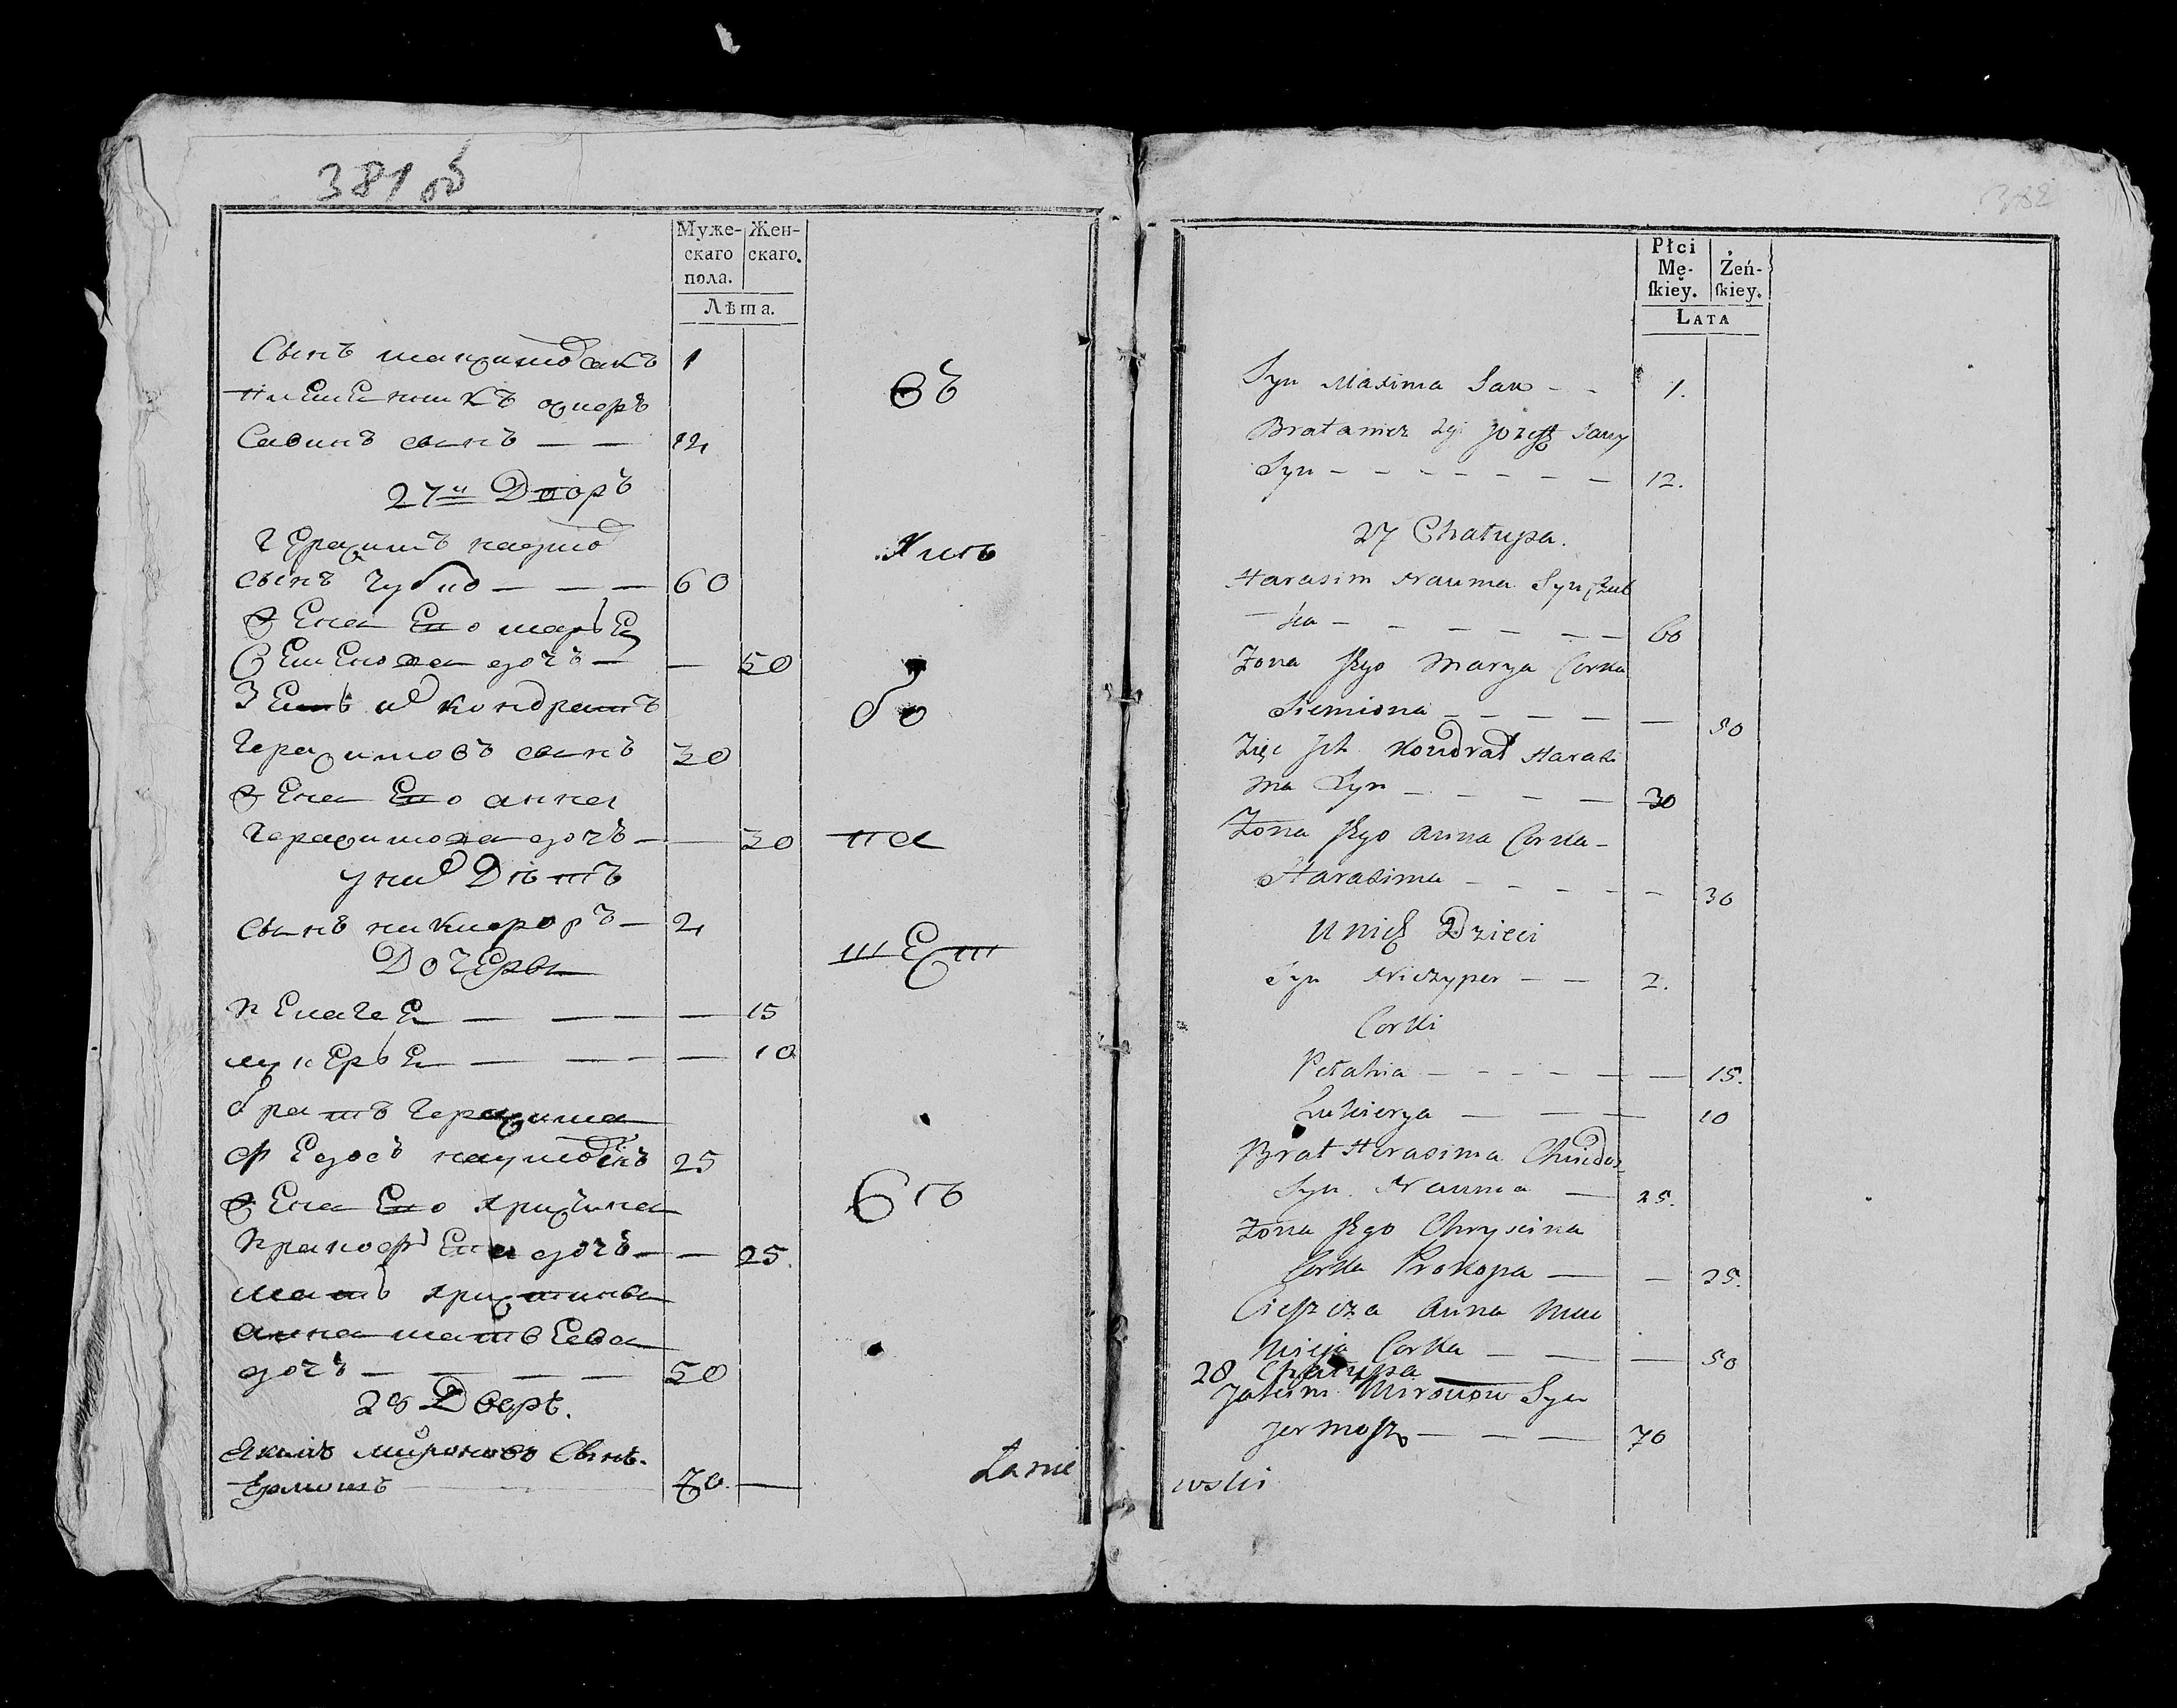 381 об
Муже-
скаго
пола.
Жен-
скаго.
Лѣта.
Сынъ Сакъ 1
племенникъ
Савинъ сынъ — — 12
27й Дворъ
Герасимъ Наумов
сынъ Чубко — — — 60
Жена Его Марья
Семенова дочъ — — 50
Зеть их Кондратъ
Герасимовъ сынъ 30
Жена Его Анна
Герасимова дочъ — — 30
у них Дѣтъ
сынъ Никифоръ — 2
Дочеры
Пелагея — — — — 15
Лукерья — — — — 10
братъ Герасима
Федосъ Наумов сынъ 25
Жена Его Христина
дочъ — — 25.
мать Христины
Анна Матвеева
дочъ — — — — 50
28 Дворъ.
Якимъ Мироновъ Сынъ.
Ермошъ 70. —
въ
бо
на
шест
Łanie
382
Płci
Mę-
ſkiey.
Żeń-
ſkiey.
LATA
Syn Maxima Sak — — 1.
Bratanicz Jozef Sawy
Syn — — — — — — — 12.
27 Chałupa.
Harasim Nauma Syn Czub
— ka — — — — — — 60
Żona Jego Marya Corka
Siemiona — — — — — 50
Zięc Ich Kondrat Harasi
ma Syn — — — — 30
Żona Jego Anna Corka —
Harasima — — — — — 30
U nich Dzieci
Syn Niczyper — — 2.
Corki
Pełahia — — — — — — 15.
Łukierya — — — 10
Brat Herasima Chwedos
Syn Nauma — 25.
Żona Jego Chryscina
Corka Prokopa — — 25.
Cieszcza Anna Mac
Corka — — — 50
28 Chałupa
Jakim Mironow Syn
Jermosz — — — 70
wski